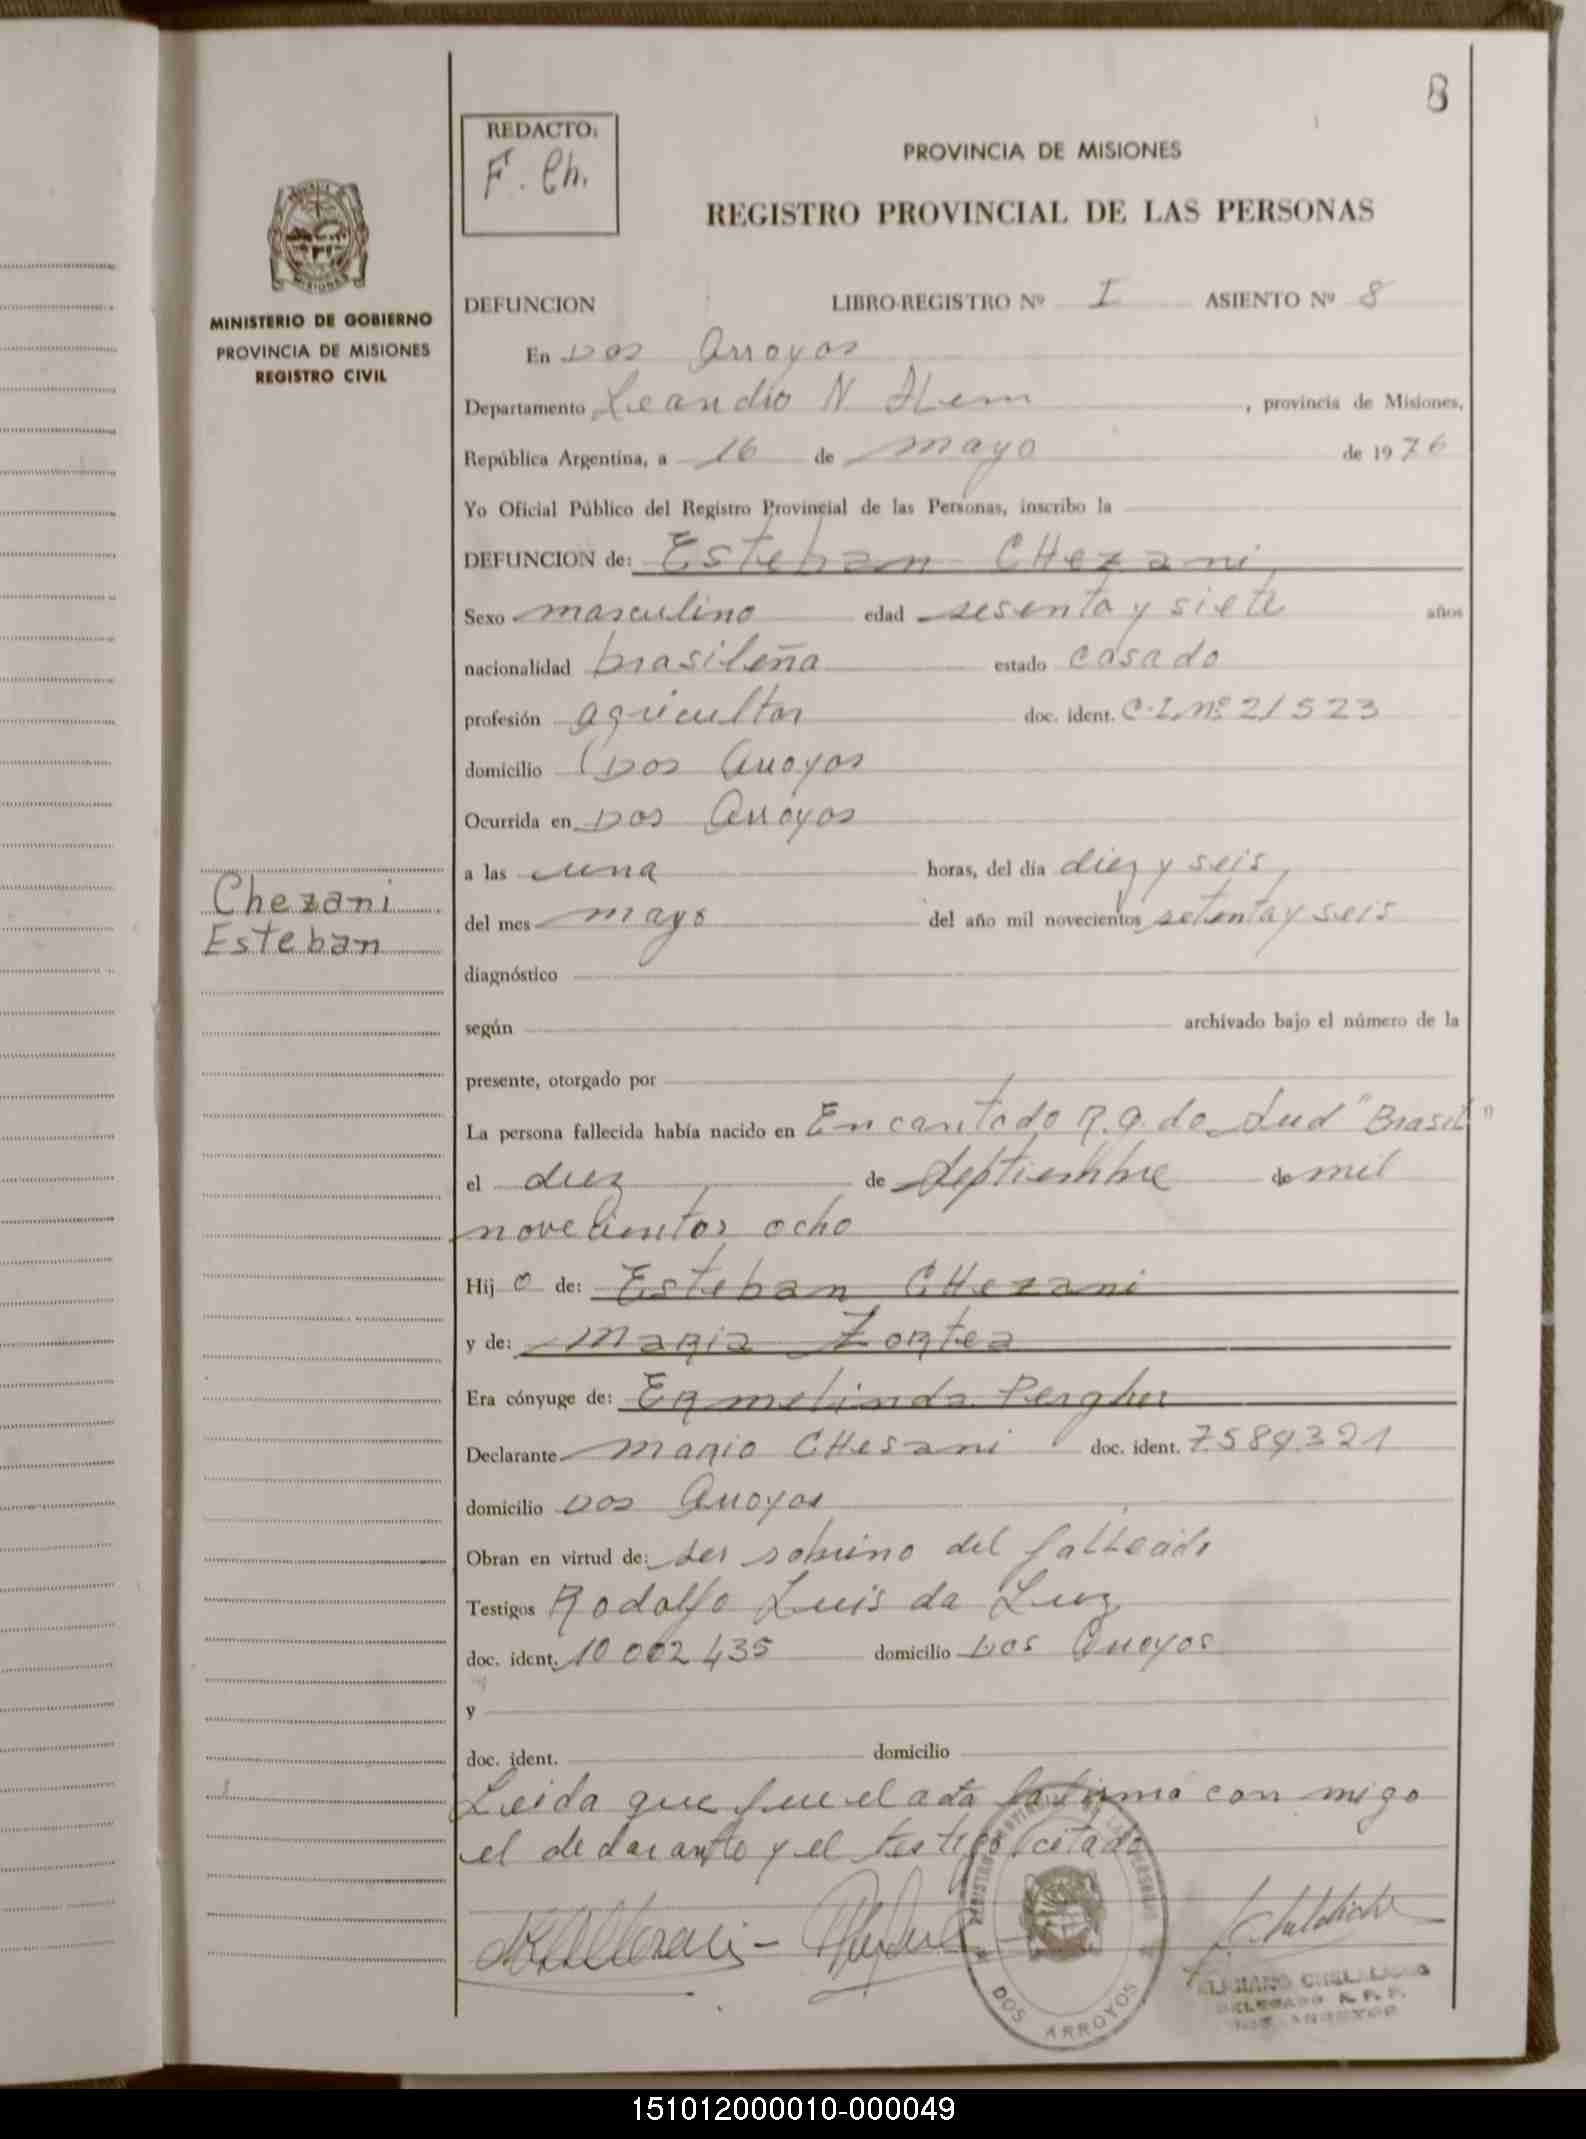 8
REDACTO:
F. Ch.
PROVINCIA DE MISIONES
REGISTRO PROVINCIAL DE LAS PERSONAS
MINISTERIO DE GOBIERNO
PROVINCIA DE MISIONES
REGISTRO CIVIL
DEFUNCION LIBRO-REGISTRO Nº I ASIENTO Nº 8
En Dos Arroyos
Departamento Leandro N Alem , provincia de Misiones,
República Argentina, a 16 de mayo de 1976
Yo Oficial Público del Registro Provincial de las Personas, inscribo la
DEFUNCION de: Esteban CHezani
Sexo masculino edad sesenta y siete años
nacionalidad brasileña estado casado
profesión agricultor doc. ident. C.I. Nº 21523
domicilio Dos Arroyos
Ocurrida en Dos Arroyos
a las una horas, del día diez y seis,
Chezani
Esteban
del mes mayo del año mil novecientos setenta y seis
diagnóstico
según archivado bajo el número de la
presente, otorgado por
La persona fallecida había nacido en Encantado R.g. do Sud "Brasil"
el diez de Septiembre de mil
novecientos ocho
Hij o de: Esteban CHezani
y de: Maria Zortea
Era cónyuge de: Ermelinda Pergher
Declarante Mario CHesani doc. ident. 7589321
domicilio Dos Arroyos
Obran en virtud de: ser sobrino del fallecido
Testigos Rodolfo Luis da Luz
doc. ident. 10 002 435 domicilio Dos Arroyos
y
doc. ident. domicilio
Leida que fue el acta la firma con migo
el declarante y el testigo citado
DOS ARROYOS
151012000010-000049